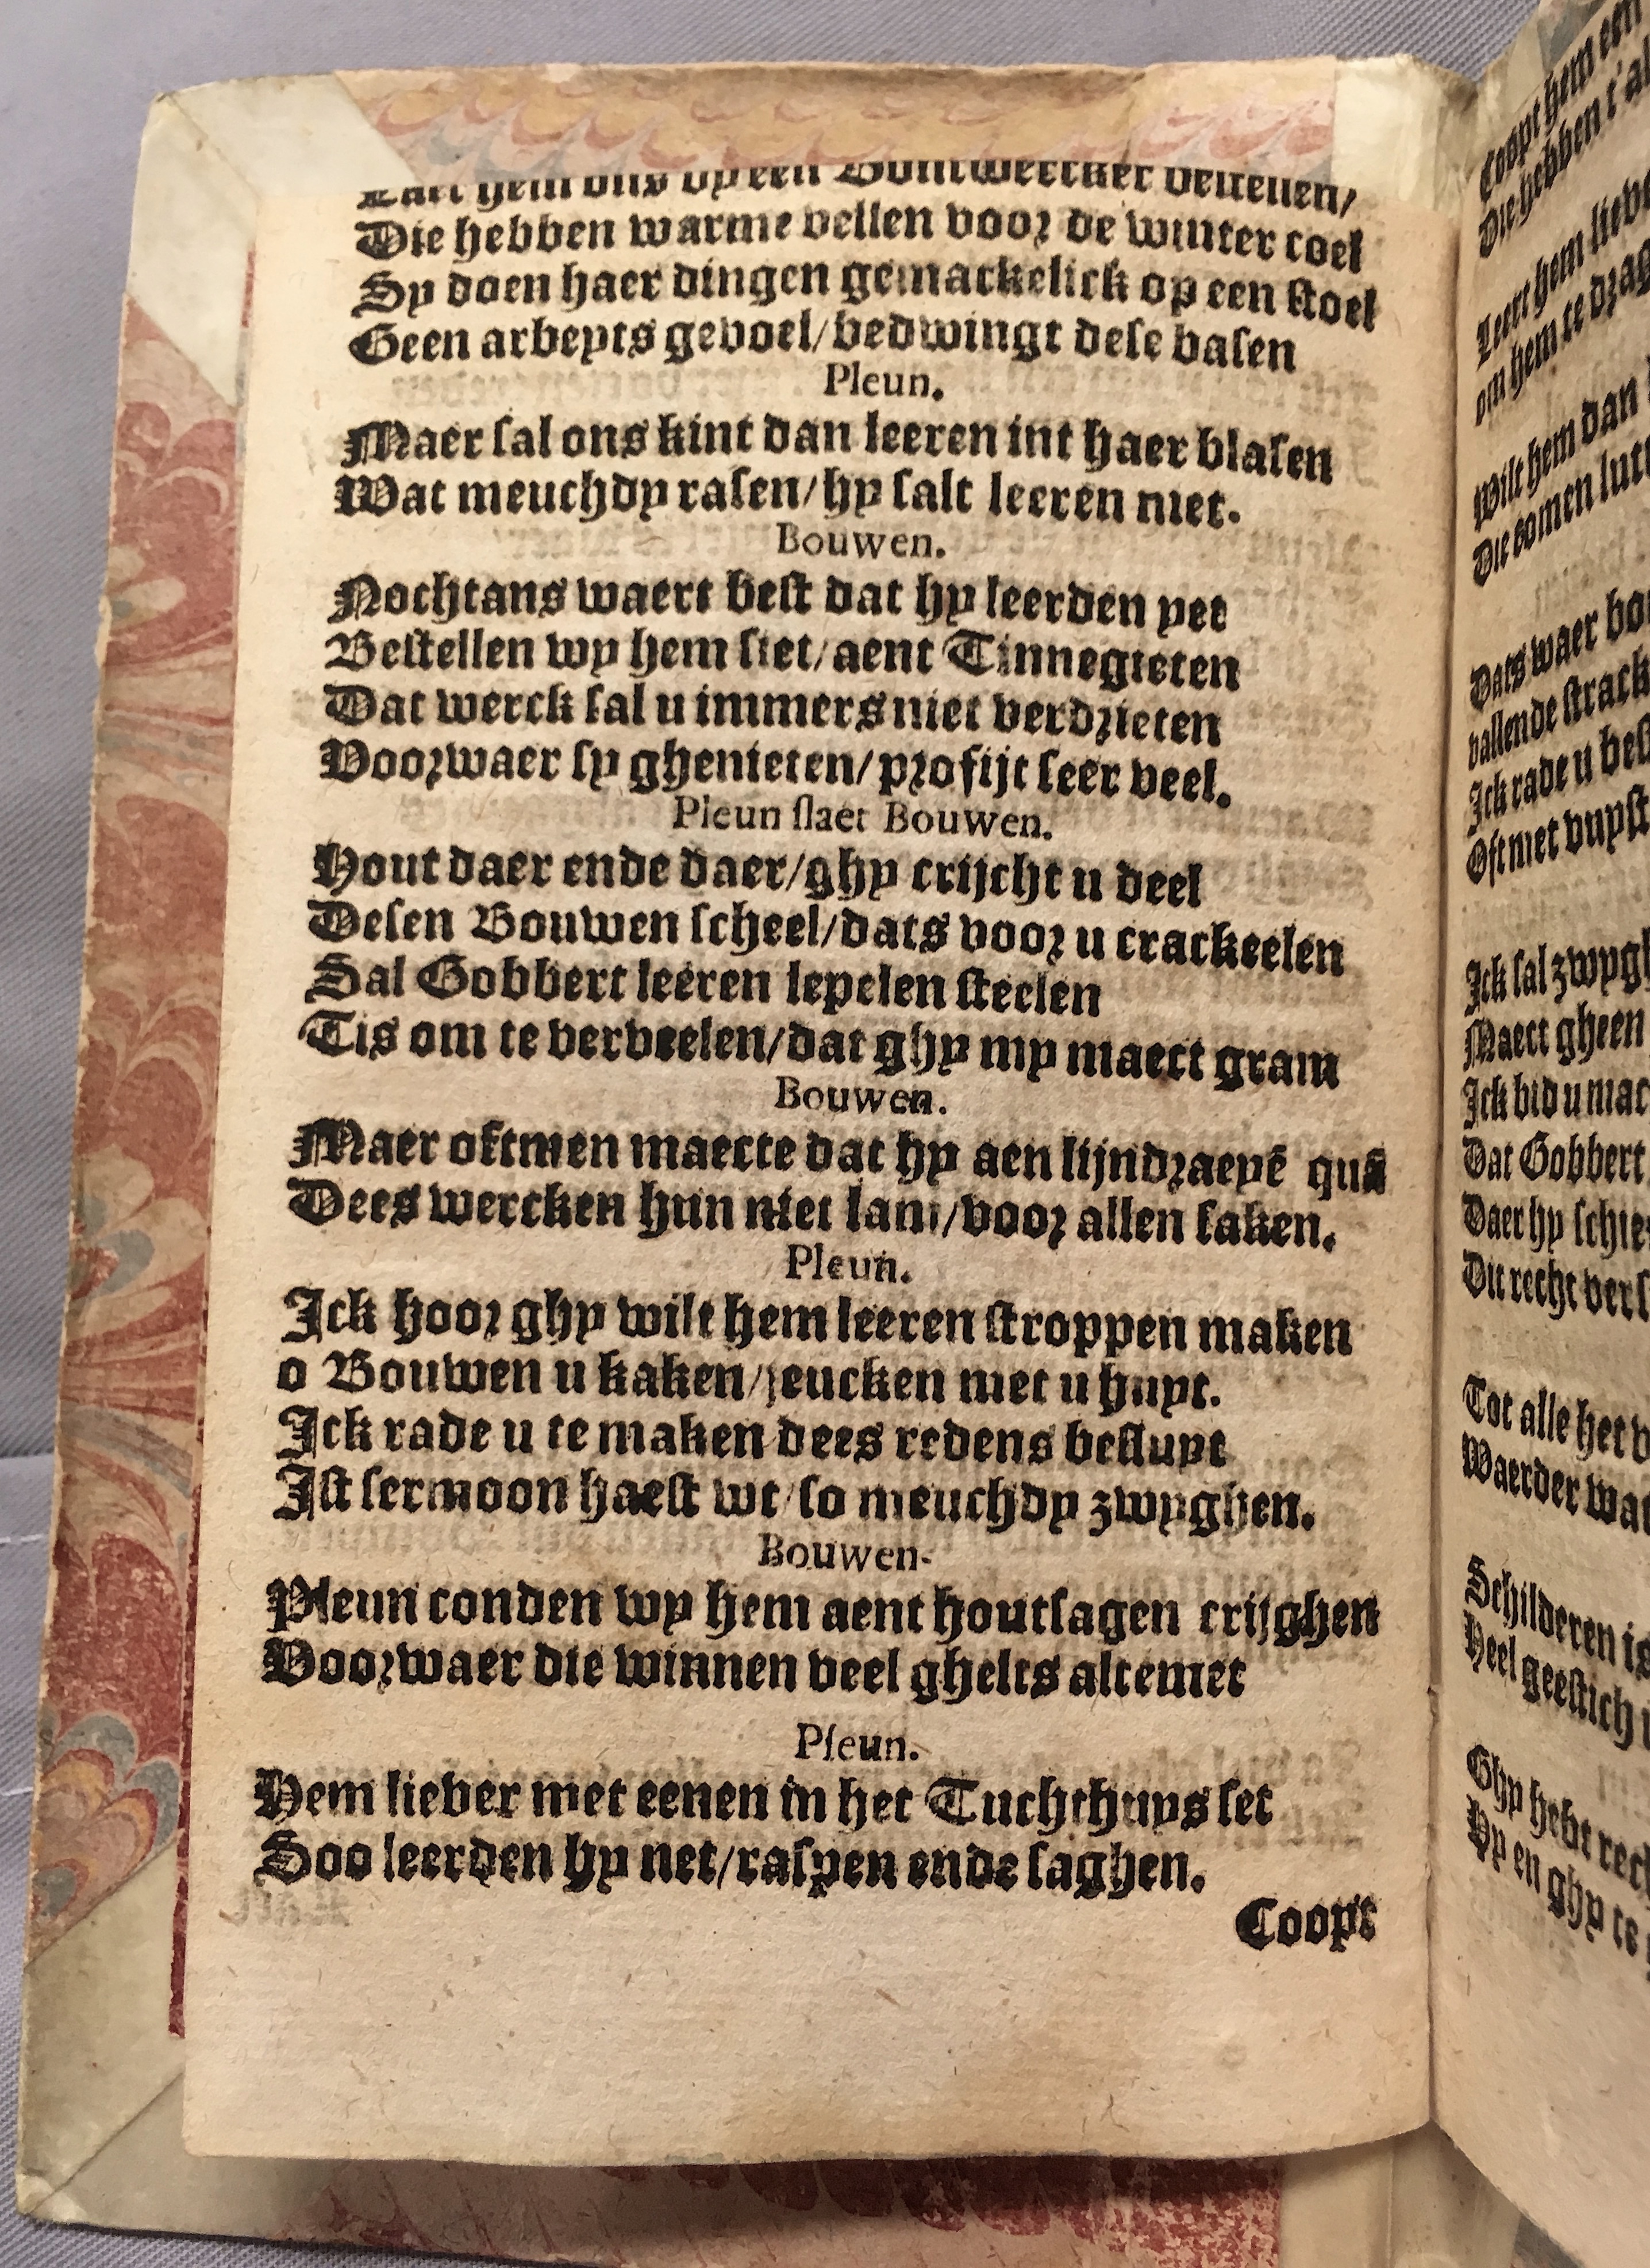 Laet hem ons op een Bontwercker bestellen/
Die hebben warme vellen voor de winter coel
Sy doen haer dingen gemackelick op een stoel
Geen arbeyts gevoel/bedwingt dese basen
Pleun.
Maer sal ons kint dan leeren int haer blasen
Wat meuchdy rasen/hy salt leeren niet.
Bouwen.
Nochtans waert best dat hy leerden yet
Bestellen wy hem siet/aent Tinnegieten
Dat werck sal u immers niet verdrieten
Voorwaer sy ghenieten/profijt seer veel.
Pleun slaet Bouwen.
Hout daer ende daer/ghy crijcht u deel
Desen Bouwen scheel/dats voor u crackeelen
Sal Gobbert leeren lepelen steelen
Tis om te verveelen/dat ghy my maect gram
Bouwen.
Maer oftmen maecte dat hy aen lijndraeyē quā
Dees wercken hun niet lam/voor allen saken.
Pleun.
Ick hoor ghy wilt hem leeren stroppen maken
o Bouwen u kaken/jeucken met u huyt.
Ick rade u te maken dees redens besluyt
Ist sermoon haest wt/so meuchdy zwyghen.
Bouwen.
Pleun conden wy hem aent houtsagen crijghen
Voorwaer die winnen veel ghelts altemet
Pleun.
Hem liever met eenen in het Tuchthuys set
Soo leerden hy net/raspen ende saghen.
Coopt
Coopt hem een
Die hebben t'al
Leert hem liev
om hem te drag
Wilt hem dan
Die comen lut
Dats waer
vallende strack
Ick rade u bes
Oft met vuyst
Ick sal zwygh
Maect gheen
Ick bid u mac
Dat Gobbert
Daer hy schie
Dit recht vers
Tot alle het
Waerder wat
Schilderen is
Heel geestich
Ghy hebt rech
Hy en ghy te